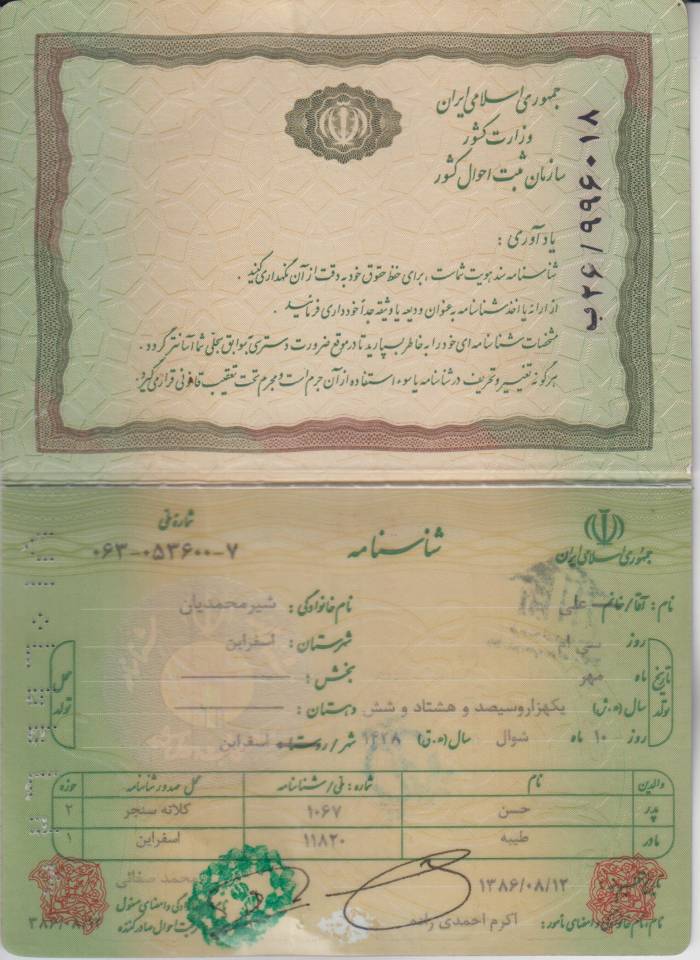 جمهوری اسلامی ایران
وزارت کشور
سازمان ثبت احوال کشور
ب۲۶/۹۹۶۰۱۸
یادآوری :
شناسنامه سند هویت شماست ، برای حفظ حقوق خود به دقت از آن نگهداری کنید .
از ارائه یا اخذ شناسنامه به عنوان ودیعه یا وثیقه جداً خودداری فرمائید .
مشخصات شناسنامه ای خود را به خاطر بسپارید تا در موقع ضرورت دسترسی به سوابق سجلی شما آسانتر گردد .
هرگونه تغییر و تحریف در شناسنامه یا سوء استفاده از آن جرم است و مجرم تحت تعقیب قانونی قرار میگیرد .
جمهوری اسلامی ایران
شناسنامه
شماره ملی
۰۶۳-۰۵۳۶۰۰-۷
نام : آقا/خانم علی نام خانوادگی : شیرمحمدیان
تاریخ تولد
روز سی ام شهرستان : اسفراین
محل تولد
ماه مهر بخش :
سال (ه.ش) یکهزاروسیصد و هشتاد و شش دهستان :
روز ۱۰ ماه شوال سال (ه.ق) ۱۴۲۸ شهر/روستا : اسفراین
والدین نام شماره : ملی/شناسنامه محل صدور شناسنامه حوزه
پدر حسن ۱۰۶۷ کلاته سنجر ۲
مادر طیبه ۱۱۸۲۰ اسفراین ۱
۱۳۸۶/۰۸/۱۲ محمد صفائی
نام، نام خانوادگی و امضای مأمور : اکرم احمدی زاده